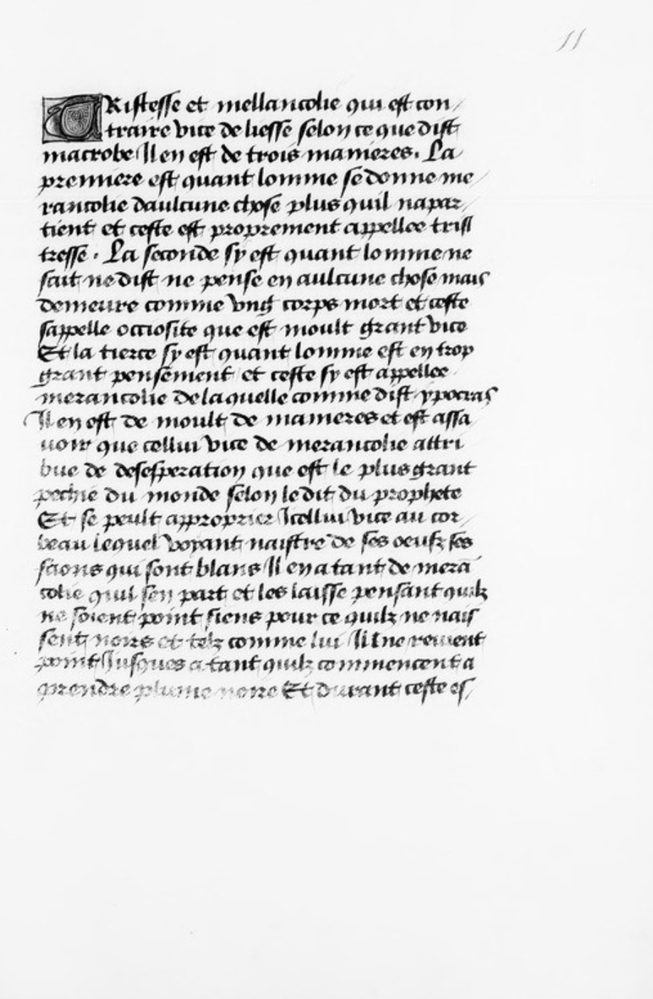 11
TRistesse et mellancolie qui est con
traire vice de liesse selon ce que dist
macrobe Il en est de trois manieres. La
premiere est quant lomme se donne me
rancolie daulcune chose plus quil napar
tient et ceste est proprement appellee tris
tresse. La seconde sy est quant lomme ne
fait ne dist ne pense en aulcune chose mais
demeure comme vng corps mort et ceste
sappelle occiosite que est moult grant vice
Et la tierce sy est quant lomme est en trop
grant pensement et ceste sy est appellee
merancolie de laquelle comme dist ypocras
Il en est de moult de manieres et est assa
uoir que cellui vice de merancolie attri
bue de desesperation que est le plus grant
pechie du monde selon le dit du prophete
Et se peult approprier Icellui vice au cor
beau lequel voyant naistre de ses oeufz ses
faons qui sont blans Il en a tant de mera
colie quil sen part et les laisse pensant quilz
ne soient point siens pour ce quilz ne nais
sent noirs et telz comme lui Il ne reuient
point Jusques a tant quilz commencent a
prendre plume noire Et durant ceste es